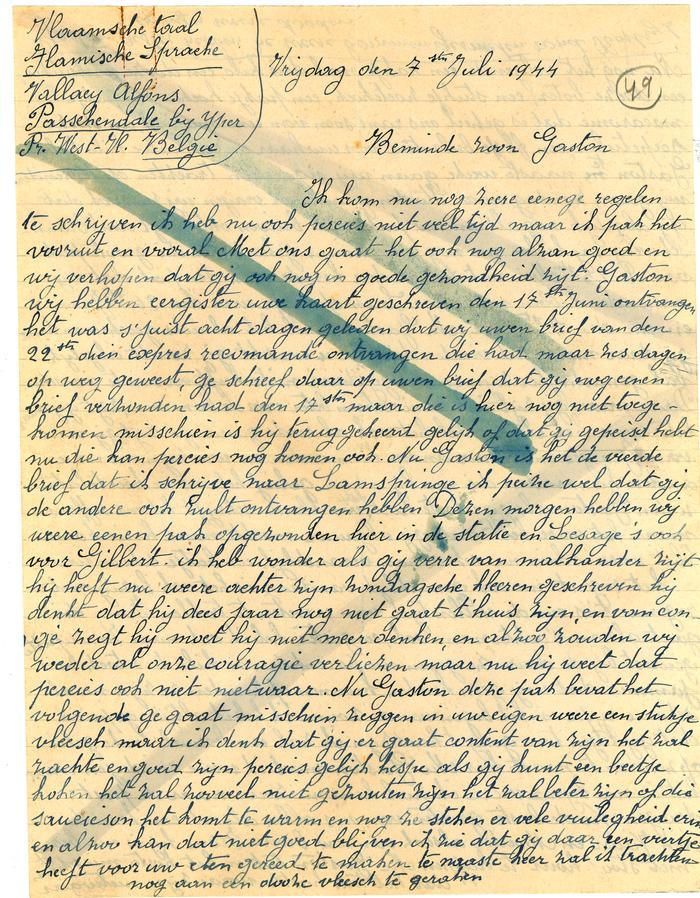 Vlaamsche taal
Flamische Sprache
Vallaey Alfons
Passchendale bij Yper
Pr. West-Vl. Belgie
Vrijdag den 7 stn Juli 1944
49
Beminde zoon Gaston
Ik kom nu nog zeere eenege regelen
te schrijven ik heb nu ook percies niet veel tijd maar ik pak het
vooruit en vooral Met ons gaat het ook nog alzan goed en
wij verhopen dat gij ook nog in goede gezondheid zijt. Gaston
wij hebben eergister uwe kaart geschreven den 17 stn Juni ontvangen
het was s'juist acht dagen geleden dat wij uwen brief van den
22 stn dien expres recomandé ontvangen die had maar zes dagen
op weg geweest, ge schreef daar op uwen brief dat gij nog eenen
brief verzonden had den 17 stn maar die is hier nog niet toege-
komen misschien is hij terug gekeerd gelijk of dat gij gepeisd hebt
nu die kan percies nog komen ook. Nu Gaston is het de vierde
brief dat ik schrijve naar Lamspringe ik peize wel dat gij
de andere ook zult ontvangen hebben Dezen morgen hebben wij
weere eenen pak opgezonden hier in de statie en Lesage's ook
voor Gilbert. ik heb wonder als gij verre van malkander zijt
hij heeft nu weere achter zijn zondagsche kleeren geschreven hij
denkt dat hij dees jaar nog niet gaat t'huis zijn, en van con-
ge zegt hij moet hij niet meer denken, en alzoo zouden wij
weder al onze couragie verliezen, maar nu hij weet dat
percies ook niet nietwaar. Nu Gaston deze pak bevat het
volgende ge gaat misschien zeggen in uw eigen weere een stukje
vleesch maar ik denk dat gij er gaat content van zijn het zal
zachte en goed zijn percies gelijk hespe als gij kunt een beetje
koken het zal zooveel niet gezouten zijn het zal beter zijn of die
saucieson het komt te warm en nog ze steken er vele vuilegheid erin
en alzoo kan dat niet goed blijven ik zie dat gij daar een viertje
heeft voor uw eten gereed te maken te naaste keer zal ik trachten
nog aan een dooze vleesch te geraken